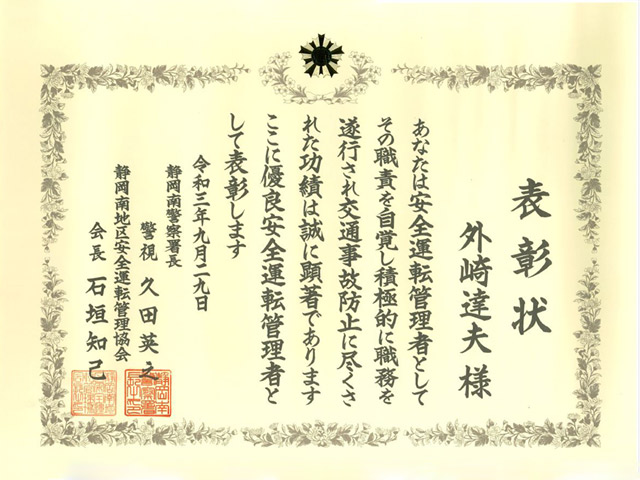 表彰状
外崎達夫様
あなたは安全運転管理者として
その職責を自覚し積極的に職務を
遂行され交通事故防止に尽くさ
れた功績は誠に顕著であります
ここに優良安全運転管理者と
して表彰します
令和三年九月二九日
静岡南警察署長
警視 久田英之
静岡南地区安全運転管理協会
会長 石垣知己